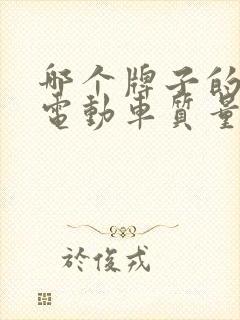 哪个牌子的
電動車質量
於俊戎